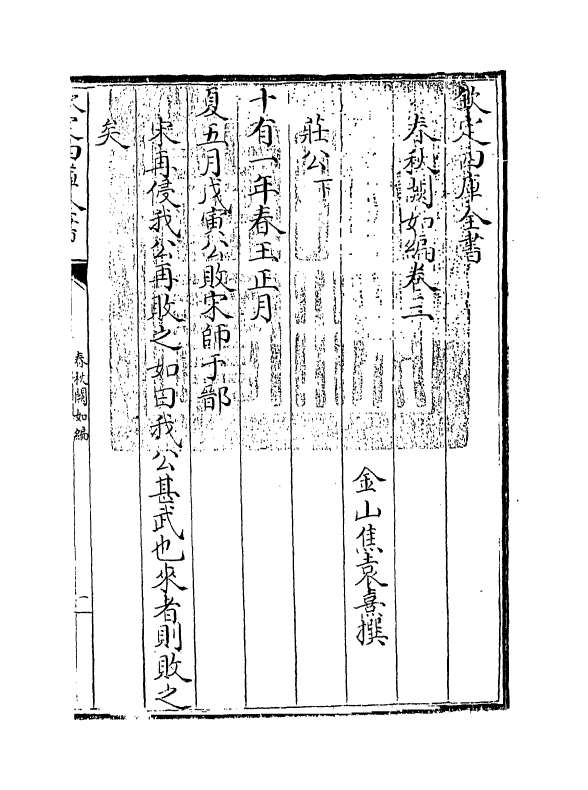 欽定四庫全書
春秋闕如編卷三
金山焦袁熹撰
莊公下
十有一年春王正月
夏五月戊寅公敗宋師于鄑
宋再侵我公再敗之如曰我公甚武也來者則敗之
矣
欽定四庫全書
春秋闕如編
一